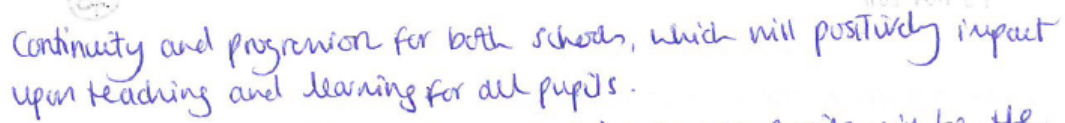 Continuity and progression for both schools, which will positively impact
upon teaching and learning for all pupils.
the